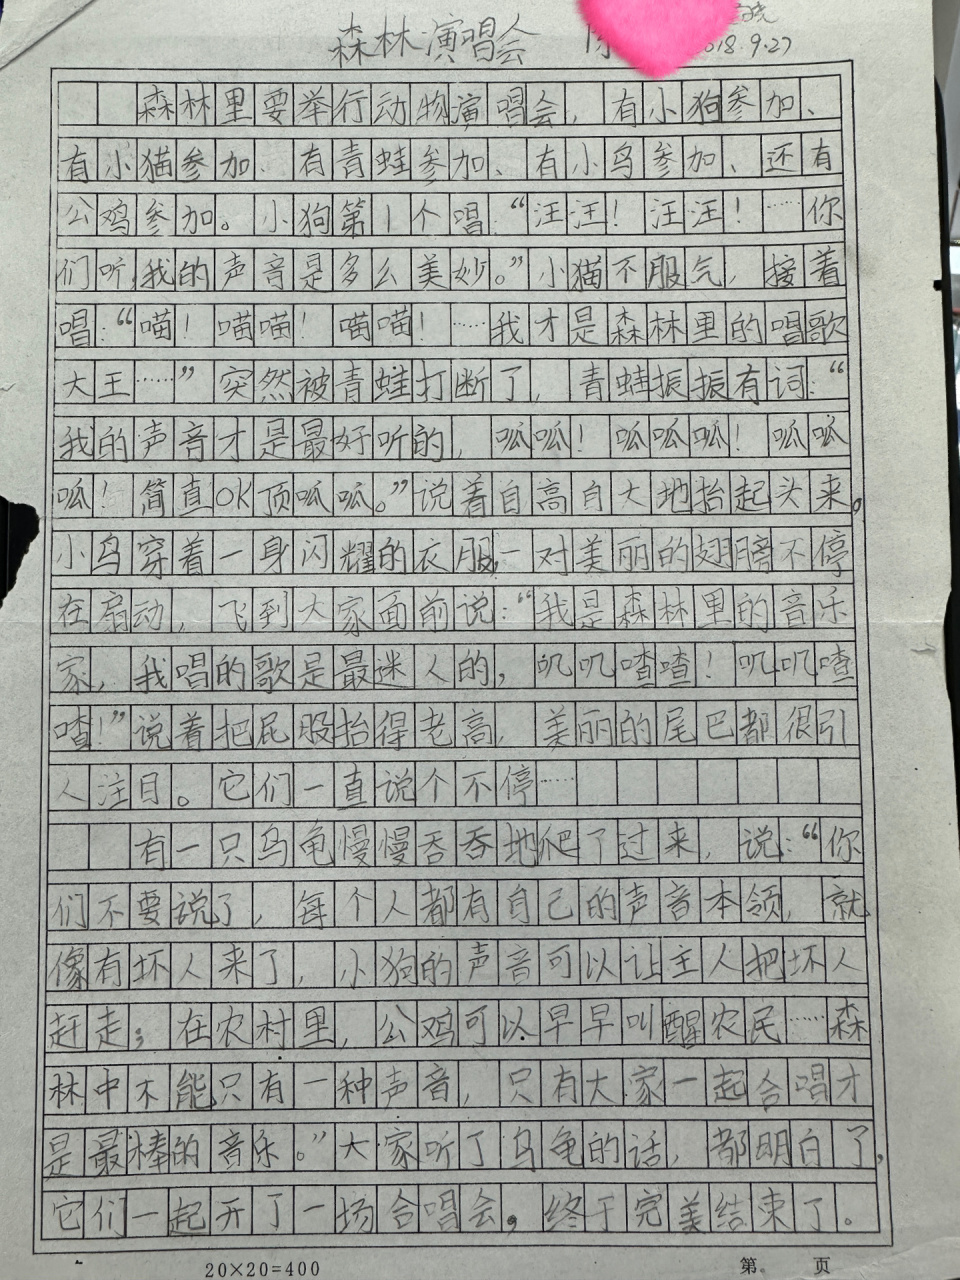 森林演唱会
2018.9.27
森林里要举行动物演唱会，有小狗参加、
有小猫参加、有青蛙参加、有小鸟参加、还有
公鸡参加。小狗第1个唱：“汪汪！汪汪！……你
们听，我的声音是多么美妙。”小猫不服气，接着
唱：“喵！喵喵！喵喵！……我才是森林里的唱歌
大王……”突然被青蛙打断了，青蛙振振有词：“
我的声音才是最好听的，呱呱！呱呱呱！呱呱
呱！简直OK顶呱呱。”说着自高自大地抬起头来，
小鸟穿着一身闪耀的衣服，一对美丽的翅膀不停
在扇动，飞到大家面前说：“我是森林里的音乐
家，我唱的歌是最迷人的，叽叽喳喳！叽叽喳
喳！”说着把屁股抬得老高，美丽的尾巴都很引
人注目。它们一直说个不停……
有一只乌龟慢慢吞吞地爬了过来，说：“你
们不要说了，每个人都有自己的声音本领，就
像有坏人来了，小狗的声音可以让主人把坏人
赶走；在农村里，公鸡可以早早叫醒农民……森
林中不能只有一种声音，只有大家一起合唱才
是最棒的音乐。”大家听了乌龟的话，都明白了，
它们一起开了一场合唱会，终于完美结束了。
20×20=400
第 页